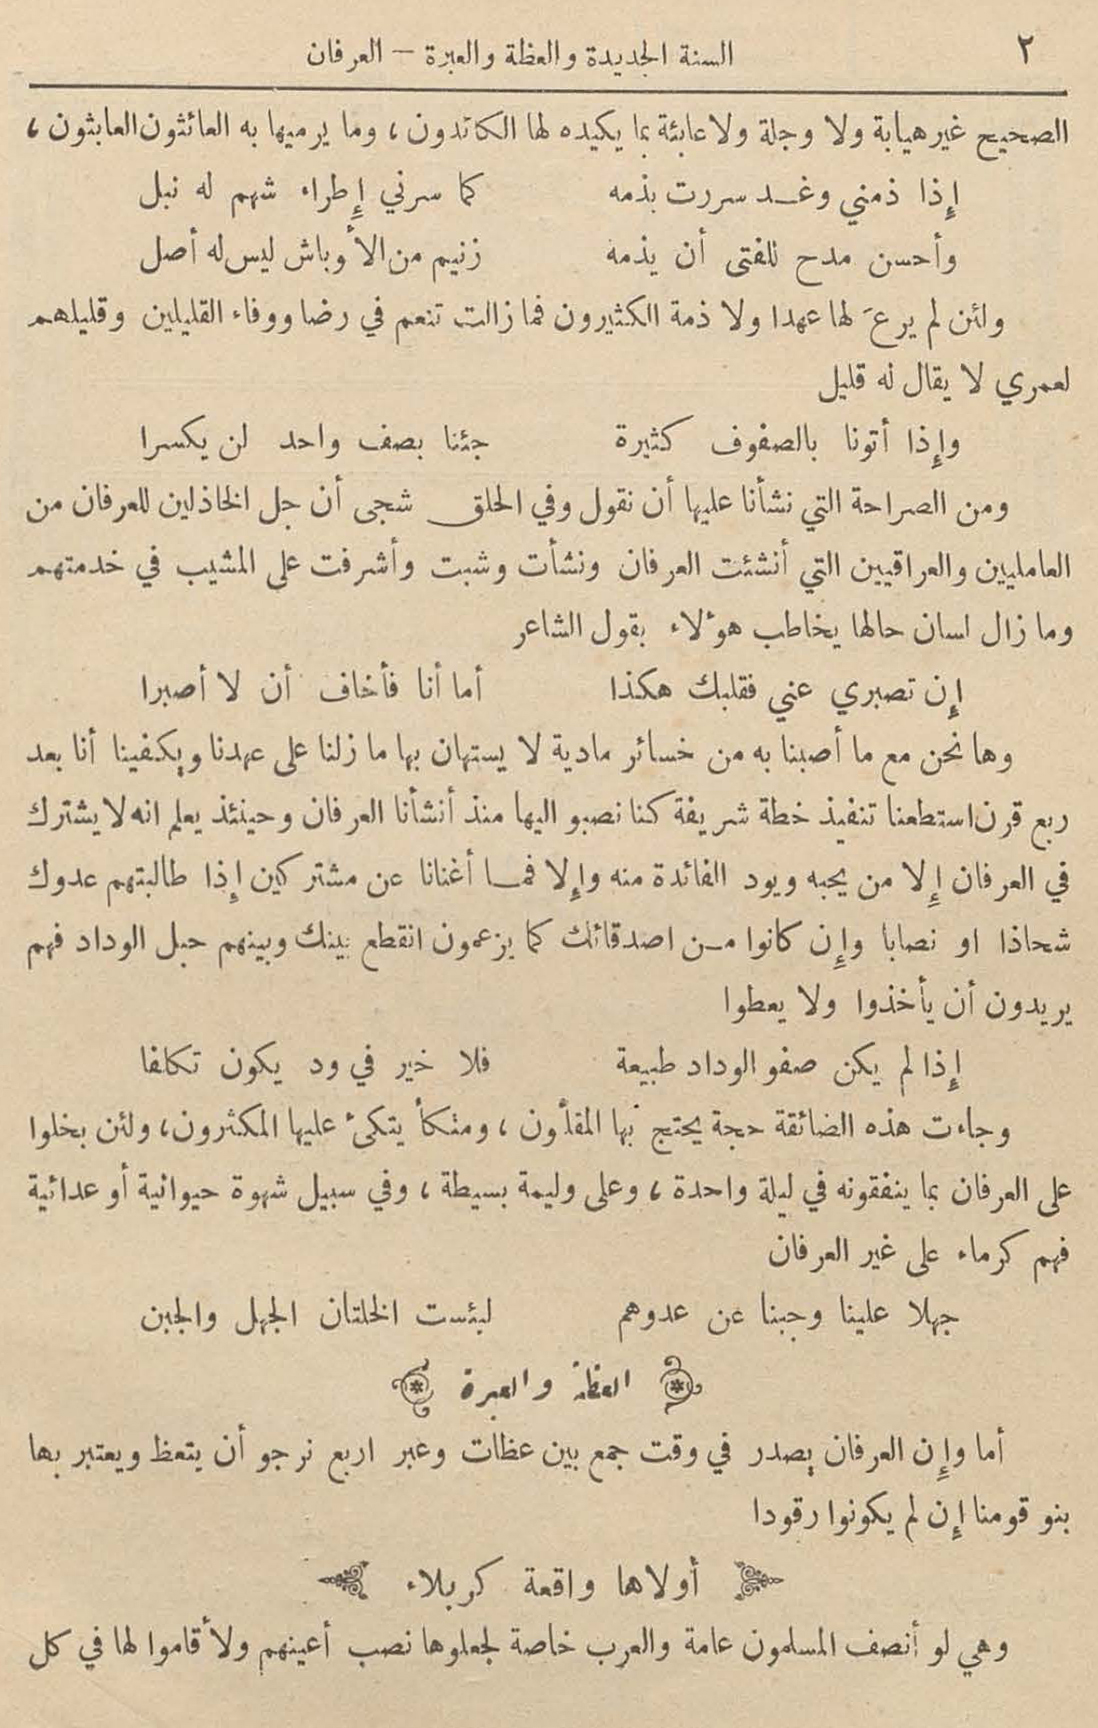 ٢ السنة الجديدة والعظة والعبرة — العرفان
الصحيح غير هيابة ولا وجلة ولا عابئة بما يكيده لها الكائدون ، وما يرميها به العائثون العابثون ،
إِذا ذمني وغـد سررت بذمه كما سرني إِطراء شهم له نبل
وأحسن مدح للفتى أن يذمه زنيم من الأوباش ليس له أصل
ولئن لم يرعَ لها عهدا ولا ذمة الكثيرون فما زالت تنعم في رضا ووفاء القليلين وقليلهم
لعمري لا يقال له قليل
وإِذا أتونا بالصفوف كثيرة جئنا بصف واحد لن يكسرا
ومن الصراحة التي نشأنا عليها أن نقول وفي الحلق شجى أن جل الخاذلين للعرفان من
العامليين والعراقيين التي أنشئت العرفان ونشأت وشبت وأشرفت على المشيب في خدمتهم
وما زال لسان حالها يخاطب هؤلاء بقول الشاعر
إِن تصبري عني فقلبك هكذا أما أنا فأخاف أن لا أصبرا
وها نحن مع ما أصبنا به من خسائر مادية لا يستهان بها ما زلنا على عهدنا ويكفينا أنا بعد
ربع قرن استطعنا تنفيذ خطة شريفة كنا نصبو اليها منذ أنشأنا العرفان وحينئذ يعلم انه لا يشترك
في العرفان إِلا من يحبه ويود الفائدة منه وإِلا فمـا أغنانا عن مشتركين إِذا طالبتهم عدوك
شحاذا او نصابا وإِن كانوا مـن اصدقائك كما يزعمون انقطع بينك وبينهم حبل الوداد فهم
يريدون أن يأخذوا ولا يعطوا
إِذا لم يكن صفو الوداد طبيعة فلا خير في ود يكون تكلفا
وجاءت هذه الضائقة حجة يحتج بها المقلّون ، ومتكأ يتكئ عليها المكثرون ، ولئن بخلوا
على العرفان بما ينفقونه في ليلة واحدة ، وعلى وليمة بسيطة ، وفي سبيل شهوة حيوانية أو عدائية
فهم كرماء على غير العرفان
جهلا علينا وجبنا عن عدوهم لبئست الخلتان الجهل والجبن
العظة والعبرة
أما وإِن العرفان يصدر في وقت جمع بين عظات وعبر اربع نرجو أن يتعظ ويعتبر بها
بنو قومنا إِن لم يكونوا رقودا
أولاها واقعة كربلاء
وهي لو أنصف المسلمون عامة والعرب خاصة لجعلوها نصب أعينهم ولأقاموا لها في كل